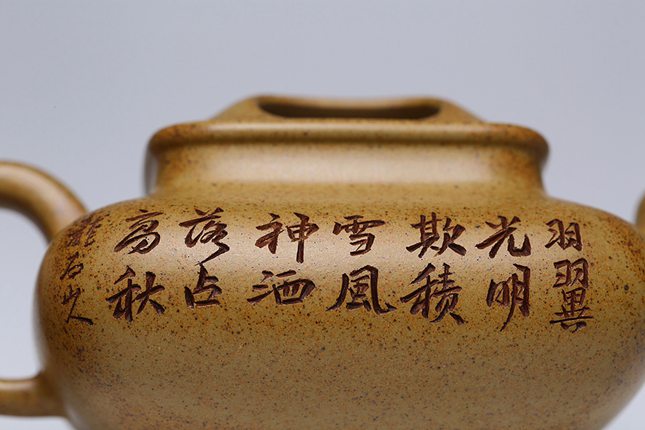 羽翼
光明
欺積
雪風
神洒
落占
高秋
石山人